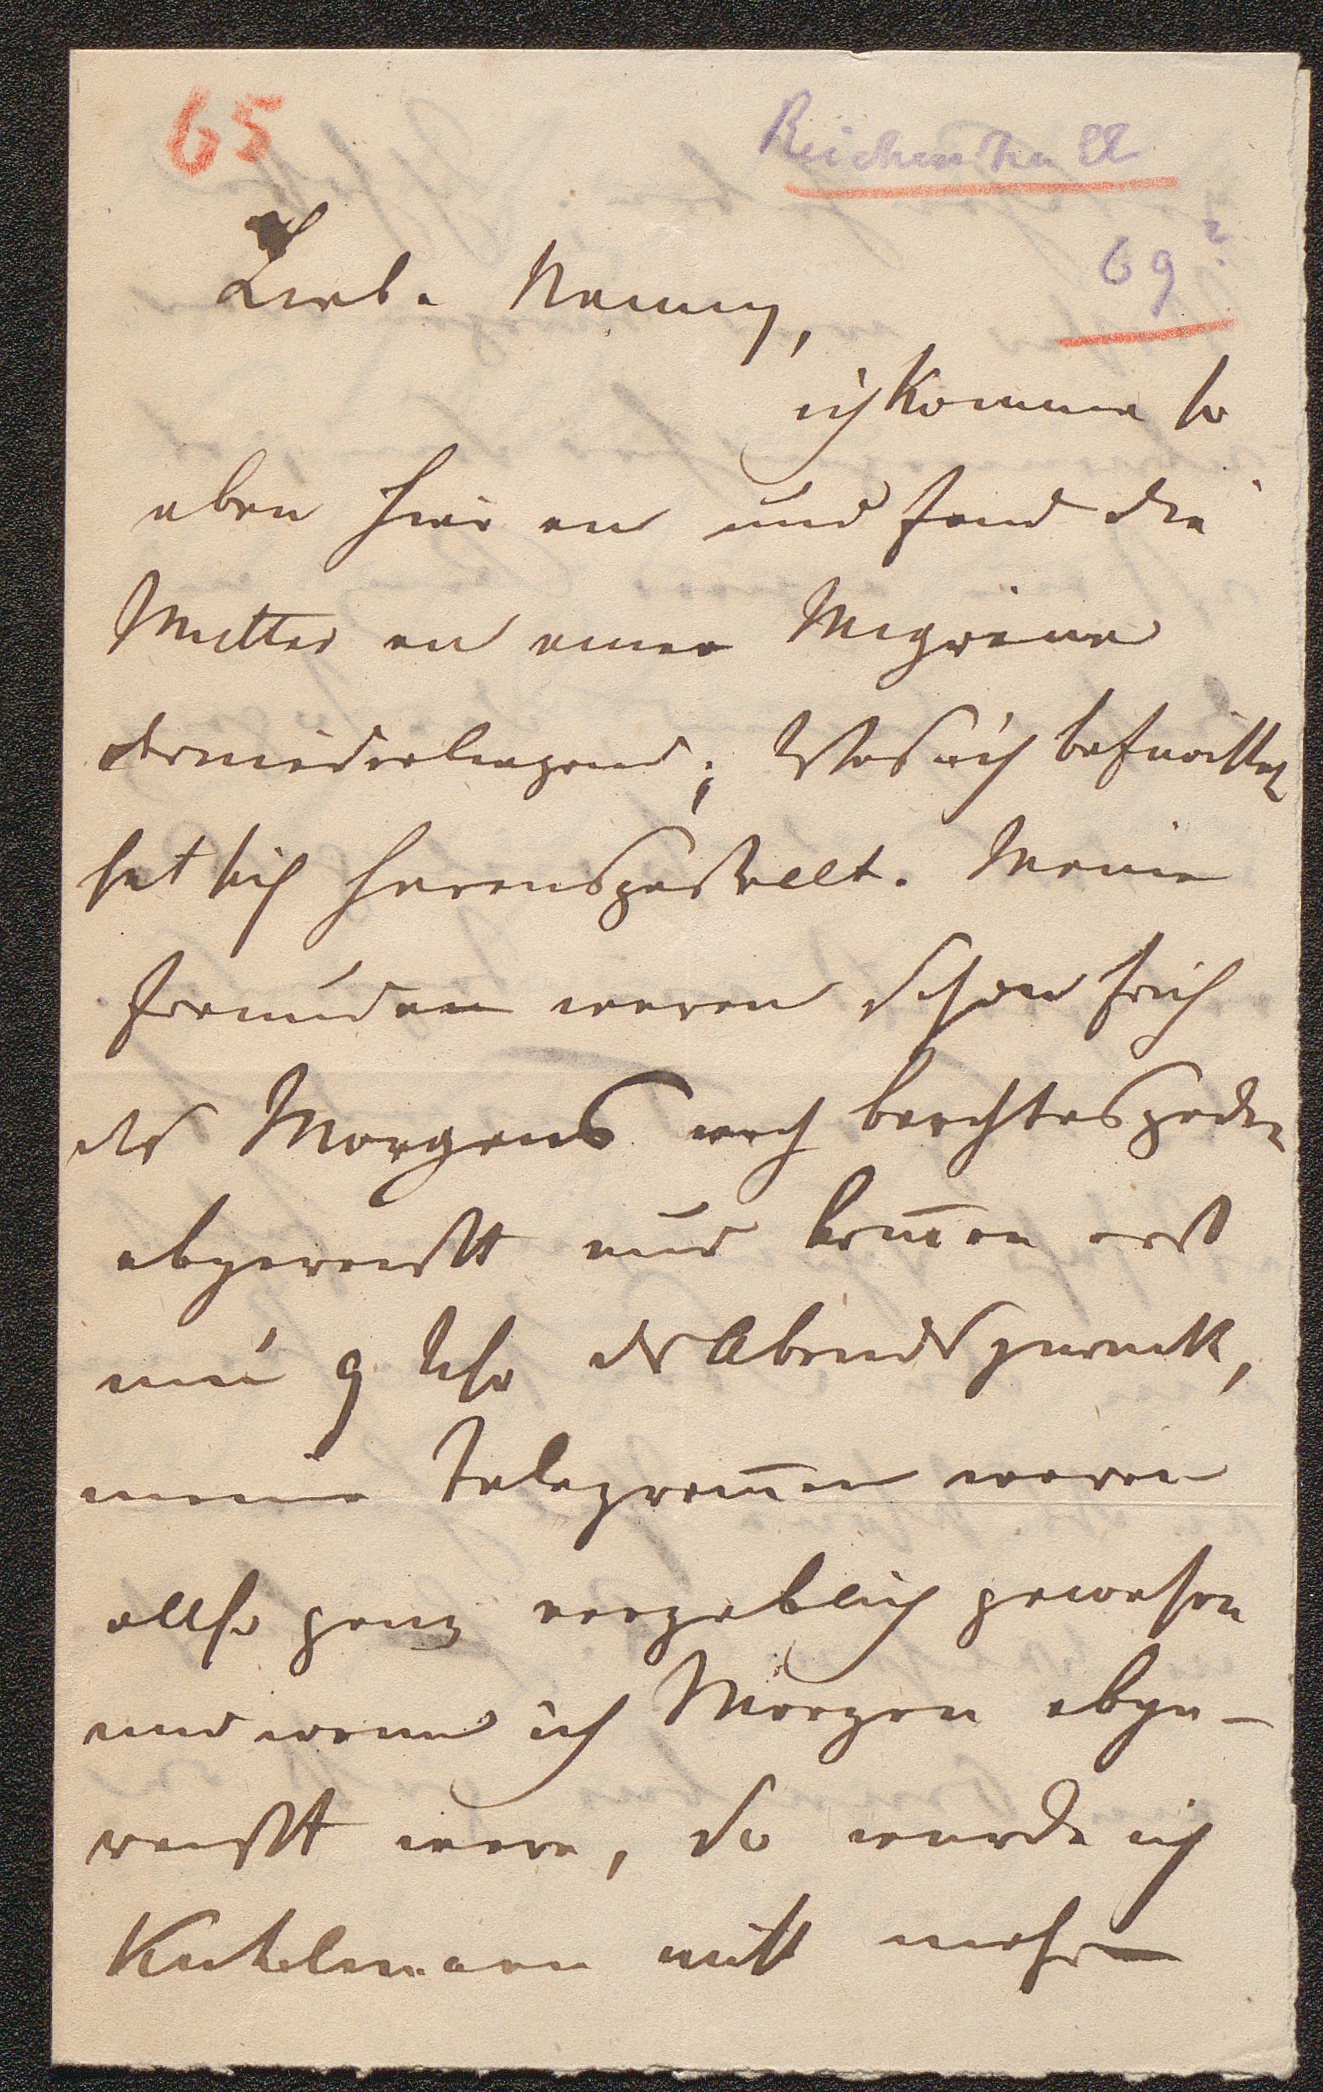 65
Reichenhall
69?
Liebe Nanny,
ich komme so
eben hier an und fand die
Mutter an einer Migräne
darniederliegend; was ich befürchtet
hat sich herausgestellt. Meine
Freunden waren schon früh
des Morgens nach Berchtesgaden
abgereisst und kom̅en erst
um 9 Uhr des Abends zurück,
meine Telegram̅en waren
allso ganz vergeblich gewesen
und wenn ich Morgen abge-
reisst wäre, so wurde ich
nicht mehr